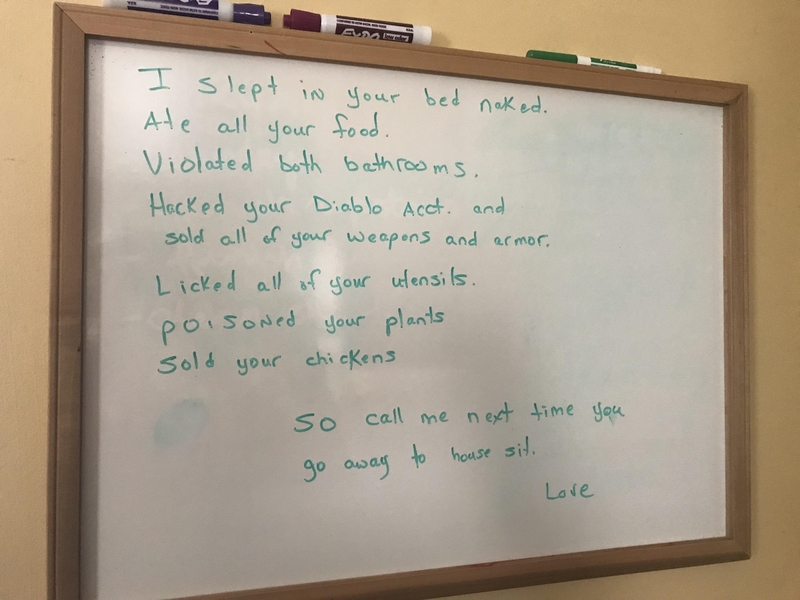 EXPO
I slept in your bed naked.
Ate all your food.
Violated both bathrooms.
Hacked your Diablo Acct. and
sold all of your weapons and armor.
Licked all of your utensils.
POISONED your plants
Sold your chickens
SO call me next time you
go away to house sit.
Love